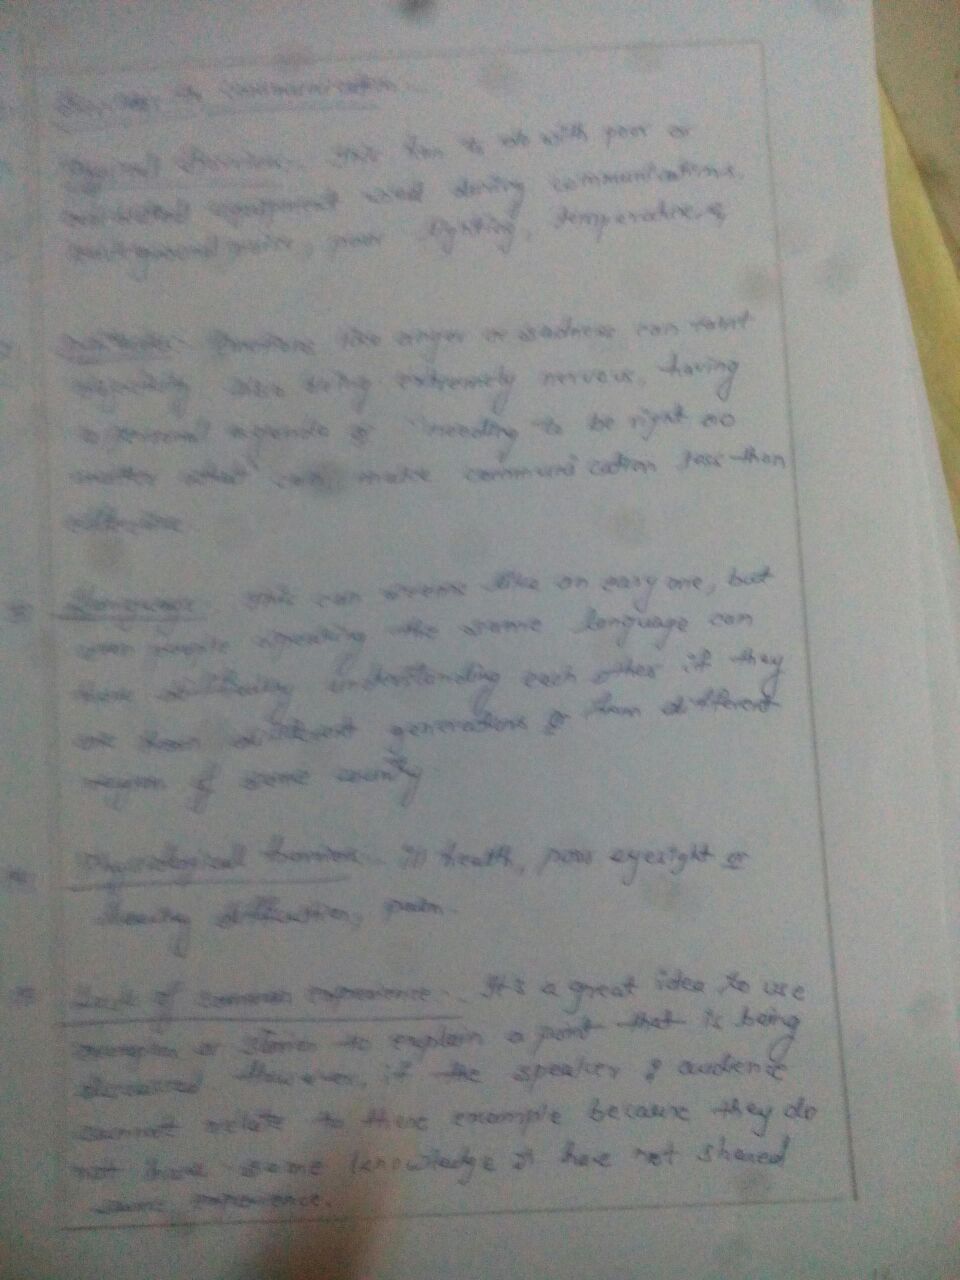 Barriers to Communication
Physical Barriers. This has to do with poor or
equipment used during communications,
background noise, poor lighting, temperatures
Emotions like anger or sadness can taint
objectivity. Also being extremely nervous, having
a personal agenda or "needing to be right no
matter what" can make communication less than
effective
3) Language. This can seems like an easy one, but
even people speaking the same language can
have difficulty understanding each other if they
are from different generations or from different
region of same country
4) Physiological barriers. ill health, poor eyesight or
hearing difficulties, pain.
5) Lack of common experience. It's a great idea to use
examples or stories to explain a point that is being
discussed. However, if the speaker & audience
cannot relate to these example because they do
not have same knowledge or have not shared
same experience.